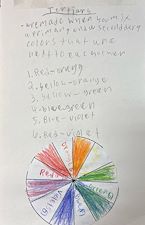 Tertiary
- are made when you mix
a primary and secondary
colors that are
next to each other
1. Red-orang
2. yellow-orange
3. yellow-green
4. blue-green
5. Blue-violet
6. Red-violet
Red